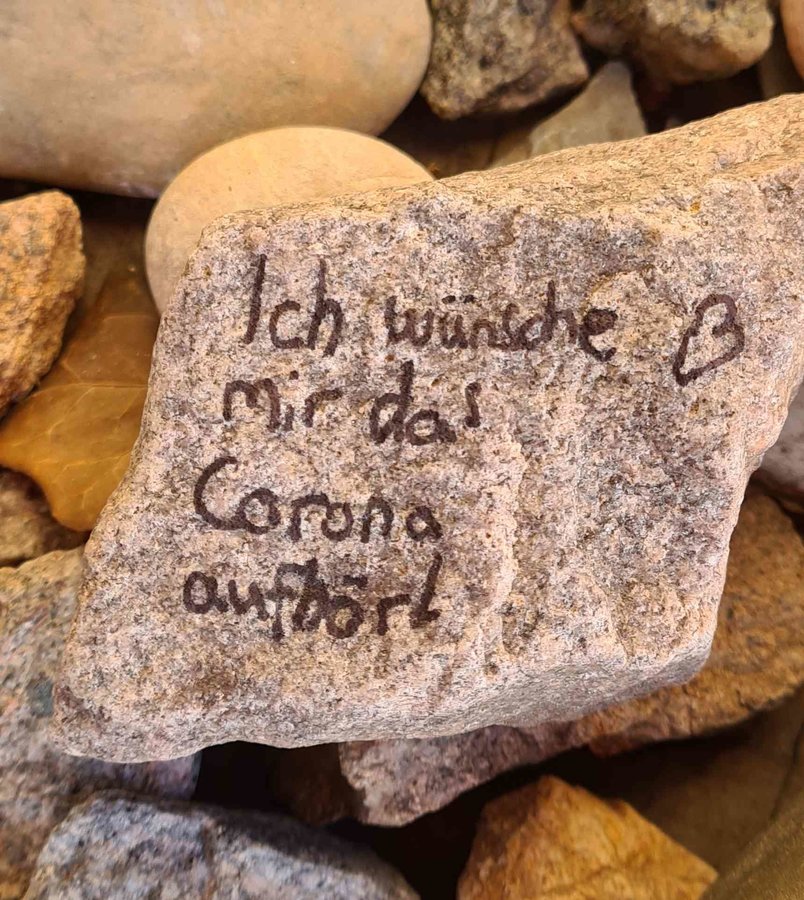 Ich wünsche
mir das
Corona
aufhört